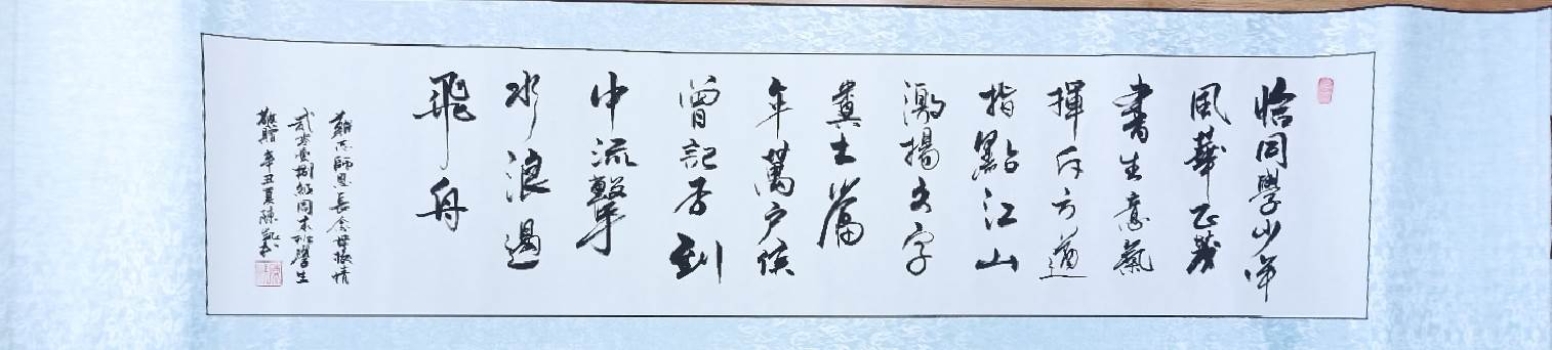 恰同學少年
風華正茂
書生意氣
揮斥方遒
指點江山
激揚文字
糞土當
年萬戶侯
曾記否到
中流擊
水浪遏
飛舟
難忘師恩長念母校情
貳零壹捌級本班學生
敬贈 辛丑夏陳